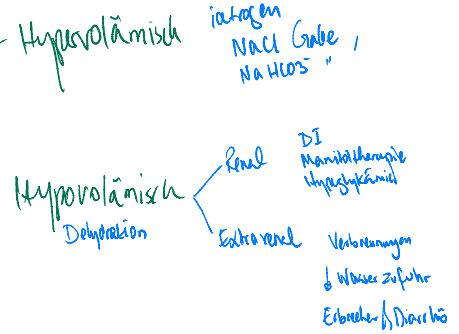 - Hypervolämisch
iatrogen
NaCl Gabe,
NaHCO3 "
Hypovolämisch
Dehydration
Renal
DI
Mannitoltherapie
Hyperglykämie
Extrarenal
Verbrennungen
↓ Wasserzufuhr
Erbrechen / Diarrhö